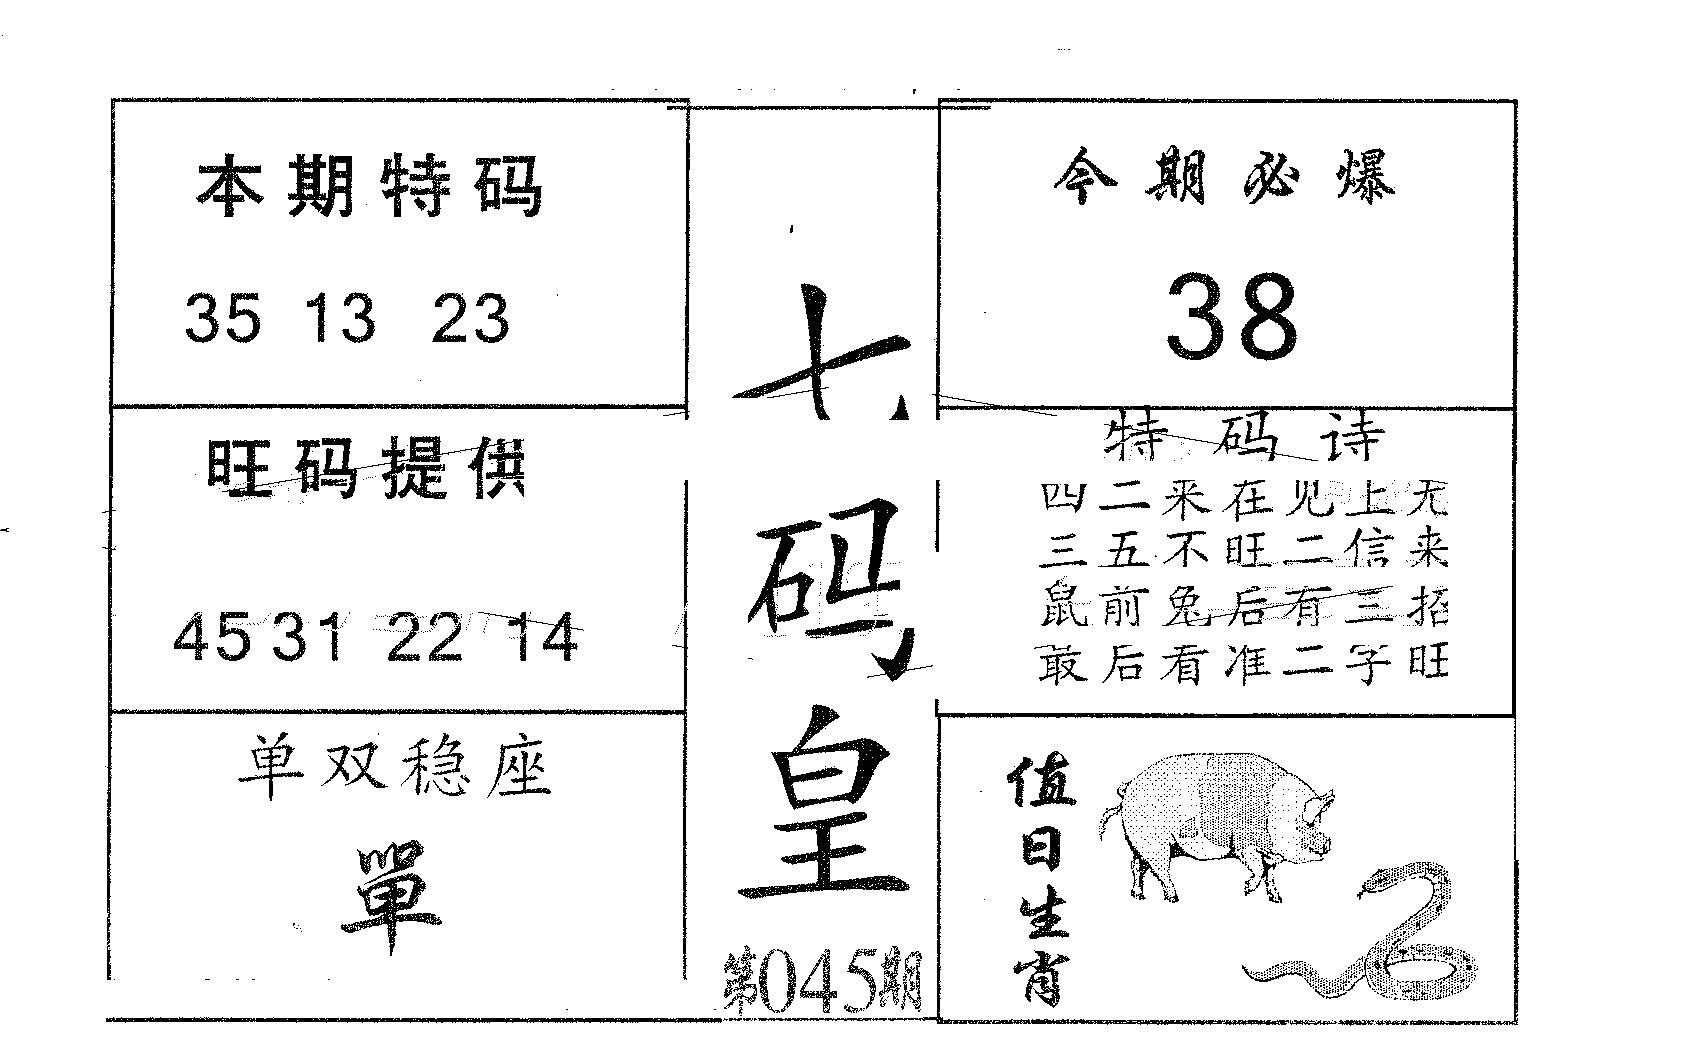 本期特码
35 13 23
旺码提供
45 31 22 14
单双稳座
單
七码皇
第045期
今期必爆
38
特码诗
四二来在见上无
三五不旺二信来
鼠前兔后有三招
最后看准二字旺
值日生肖